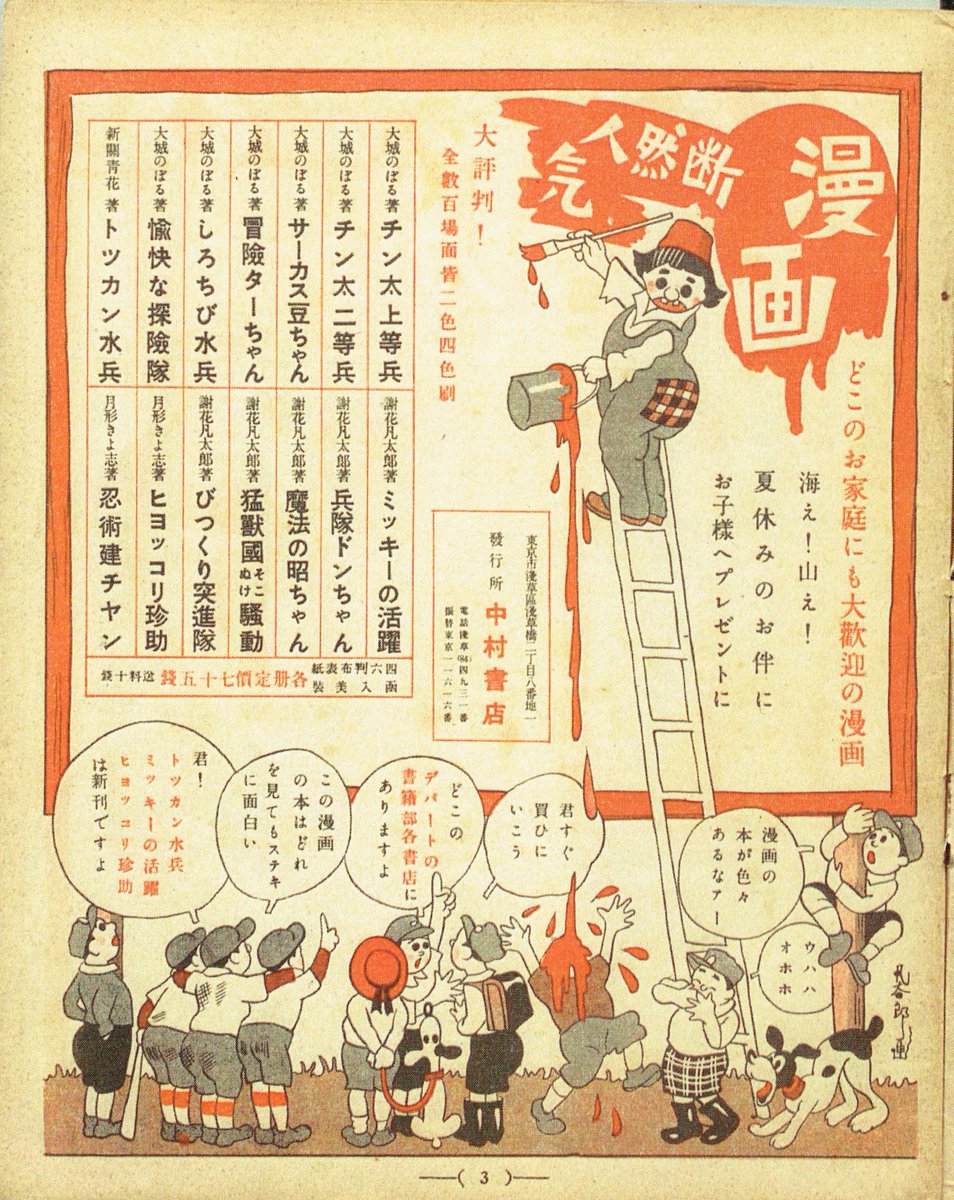 漫画
断然人気
どこのお家庭にも大歡迎の漫画
海え！山え！
夏休みのお伴に
お子様へプレゼントに
大評判！
全數百場面皆二色四色刷
大城のぼる著 チン太上等兵
大城のぼる著 チン太二等兵
大城のぼる著 サーカス豆ちゃん
大城のぼる著 冒險ターちゃん
大城のぼる著 しろちび水兵
大城のぼる著 愉快な探險隊
新關青花著 トツカン水兵
謝花凡太郎著 ミッキーの活躍
謝花凡太郎著 兵隊ドンちゃん
謝花凡太郎著 魔法の昭ちゃん
謝花凡太郎著 猛獸國そこぬけ騷動
謝花凡太郎著 びつくり突進隊
月形きよ志著 ヒヨッコリ珍助
月形きよ志著 忍術建チヤン
四六判布表紙
函入美裝
各册定價七十五錢
送料十錢
東京市淺草區淺草橋二丁目八番地一
發行所 中村書店
電話淺草(84)四九三一番
振替東京一一六一六番
漫画の
本が色々
あるなァー
ウハハ
オホホ
君すぐ
買ひに
いこう
どこの
デパートの
書籍部各書店に
ありますよ
この漫画
の本はどれ
を見てもステキ
に面白い
君！
トツカン水兵
ミッキーの活躍
ヒヨッコリ珍助
は新刊ですよ
凡太郎画
(3)